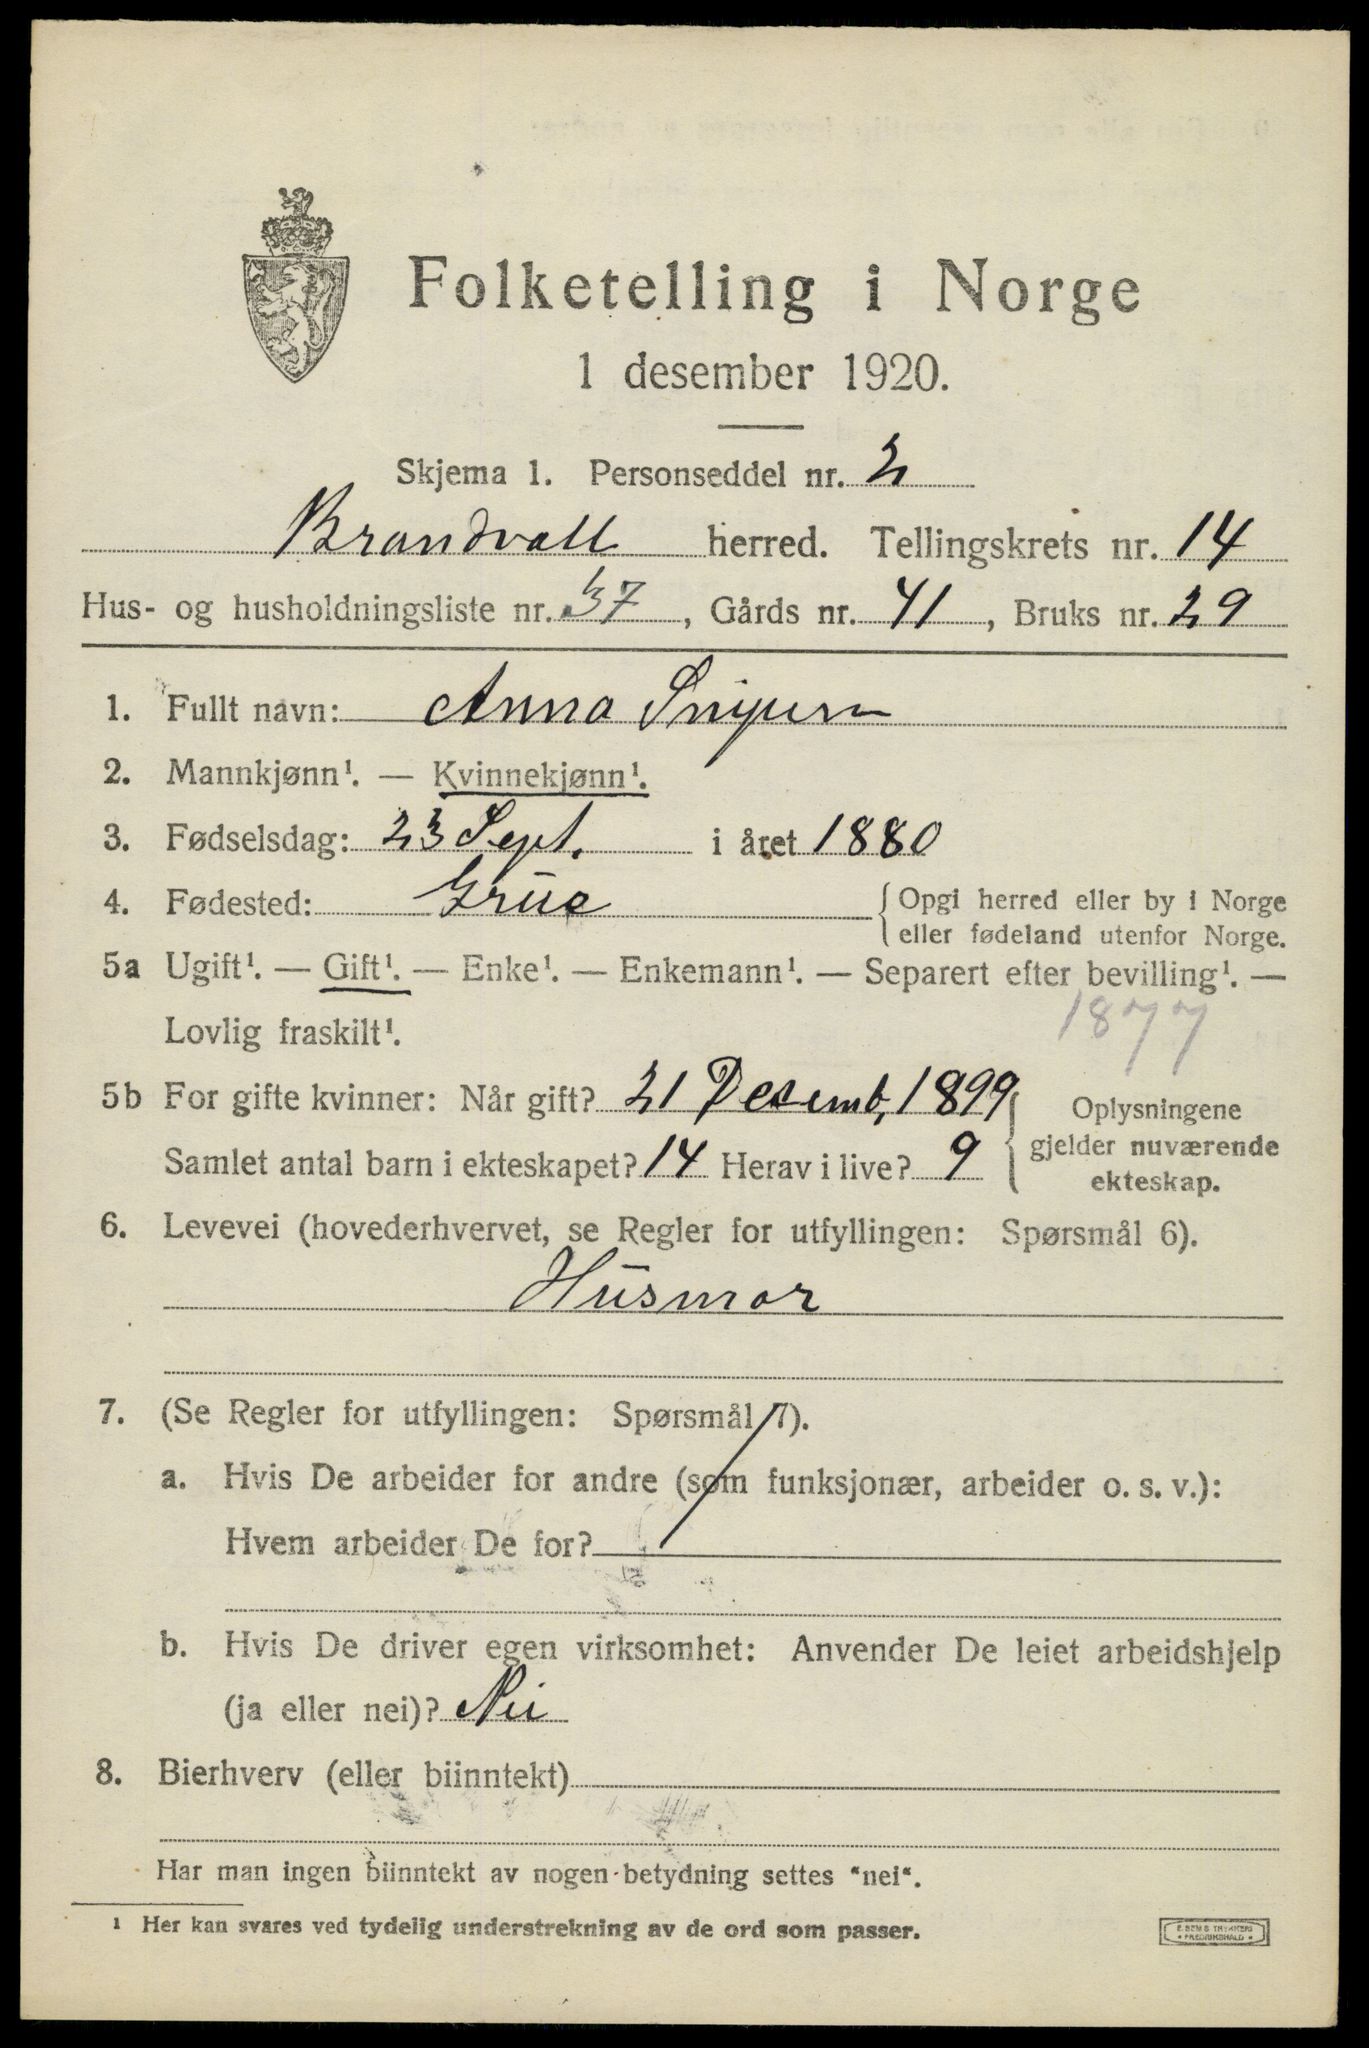 Folketelling i Norge
1 desember 1920.
Skjema 1. Personseddel nr. 2
Brandvall herred. Tellingskrets nr. 14
Hus- og husholdningsliste nr. 37, Gårds nr. 41, Bruks nr. 29
1. Fullt navn: Anna
2. Mannkjønn¹. — Kvinnekjønn¹.
3. Fødselsdag: 23 Sept. i året 1880
4. Fødested: Grue {Opgi herred eller by i Norge
eller fødeland utenfor Norge.
5a Ugift¹. — Gift¹. — Enke¹. — Enkemann¹. — Separert efter bevilling¹. —
Lovlig fraskilt¹. 1877
5b For gifte kvinner: Når gift? 21 Desemb, 1899
Samlet antal barn i ekteskapet? 14 Herav i live? 9
Oplysningene
gjelder nuværende
ekteskap.
6. Levevei (hovederhvervet, se Regler for utfyllingen: Spørsmål 6).
Husmor
7. (Se Regler for utfyllingen: Spørsmål 7).
a. Hvis De arbeider for andre (som funksjonær, arbeider o. s. v.):
Hvem arbeider De for?
b. Hvis De driver egen virksomhet: Anvender De leiet arbeidshjelp
(ja eller nei)? Nei
8. Bierhverv (eller biinntekt)
Har man ingen biinntekt av nogen betydning settes "nei".
¹ Her kan svares ved tydelig understrekning av de ord som passer.